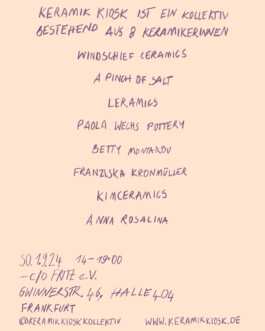 KERAMIK KIOSK IST EIN KOLLEKTIV
BESTEHEND AUS 8 KERAMIKERINNEN
WINDSCHIEF CERAMICS
A PINCH OF SALT
LERAMICS
PAOLA WECHS POTTERY
BETTY MONTARDU
FRANZISKA KRONMÜLLER
KIMCERAMICS
ANNA ROSALINA
SO. 1.9.24 14-19:00
-c/o FRITZ e.V.
GWINNERSTR. 46, HALLE 404
FRANKFURT
@KERAMIKKIOSKKOLLEKTIV WWW.KERAMIKKIOSK.DE